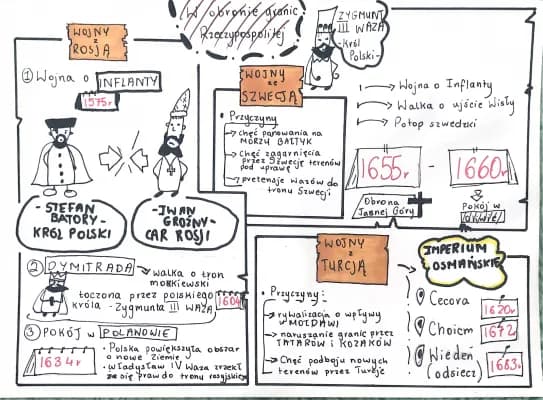 W obronie granic
Rzeczypospolitej
WOJNY
z
ROSJĄ
① Wojna o INFLANTY
1575r
- STEFAN
BATORY -
KRÓL POLSKI
- IWAN
GROŹNY -
CAR ROSJI
② DYMITRADA
walka o tron
moskiewski
toczona przez polskiego
króla - Zygmunta III WAZA
1604
③ POKÓJ w POLANOWIE
1634r
• Polska powiększyła obszar
o nowe ziemie
• Władysław IV Waza zrzekł
się praw do tronu rosyjskiego
ZYGMUNT
III WAZA
-Król
Polski-
WOJNY
ze
SZWECJĄ
• Przyczyny
chęć panowania na
MORZU BAŁTYK
chęć zagarnięcia
przez Szwecję terenów
pod uprawę
pretensje Wazów do
tronu Szwecji
Wojna o Inflanty
Walka o ujście Wisły
Potop szwedzki
1655r - 1660r
Obrona
Jasnej Góry
Pokój w
WOJNY
z
TURCJĄ
• Przyczyny:
rywalizacja o wpływy
w MOŁDAWII
naruszanie granic przez
TATARÓW i KOZAKÓW
Chęć podboju nowych
terenów przez Turcję
IMPERIUM
OSMAŃSKIE
Cecora
1620r
Chocim
1672
Wiedeń
(odsiecz)
1683r